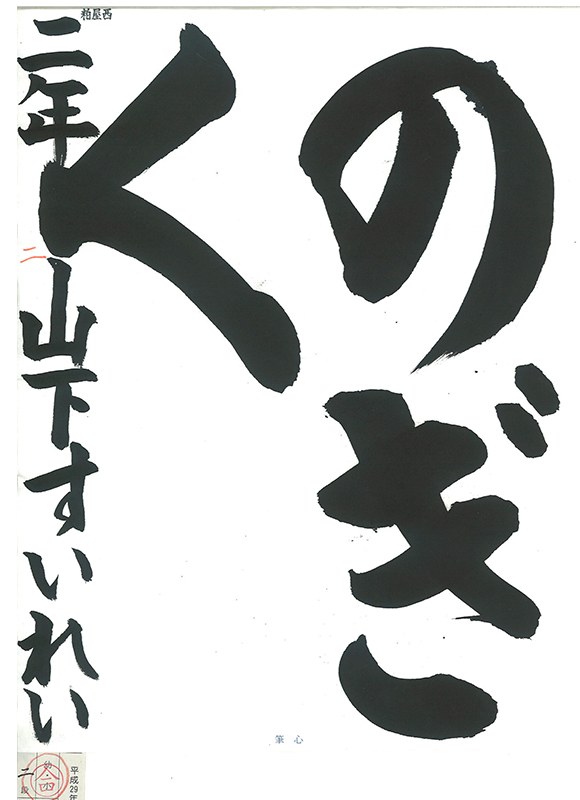 のぎ
く
二年 山下すいれい
粕屋西
二
心筆
平成29年
二
段